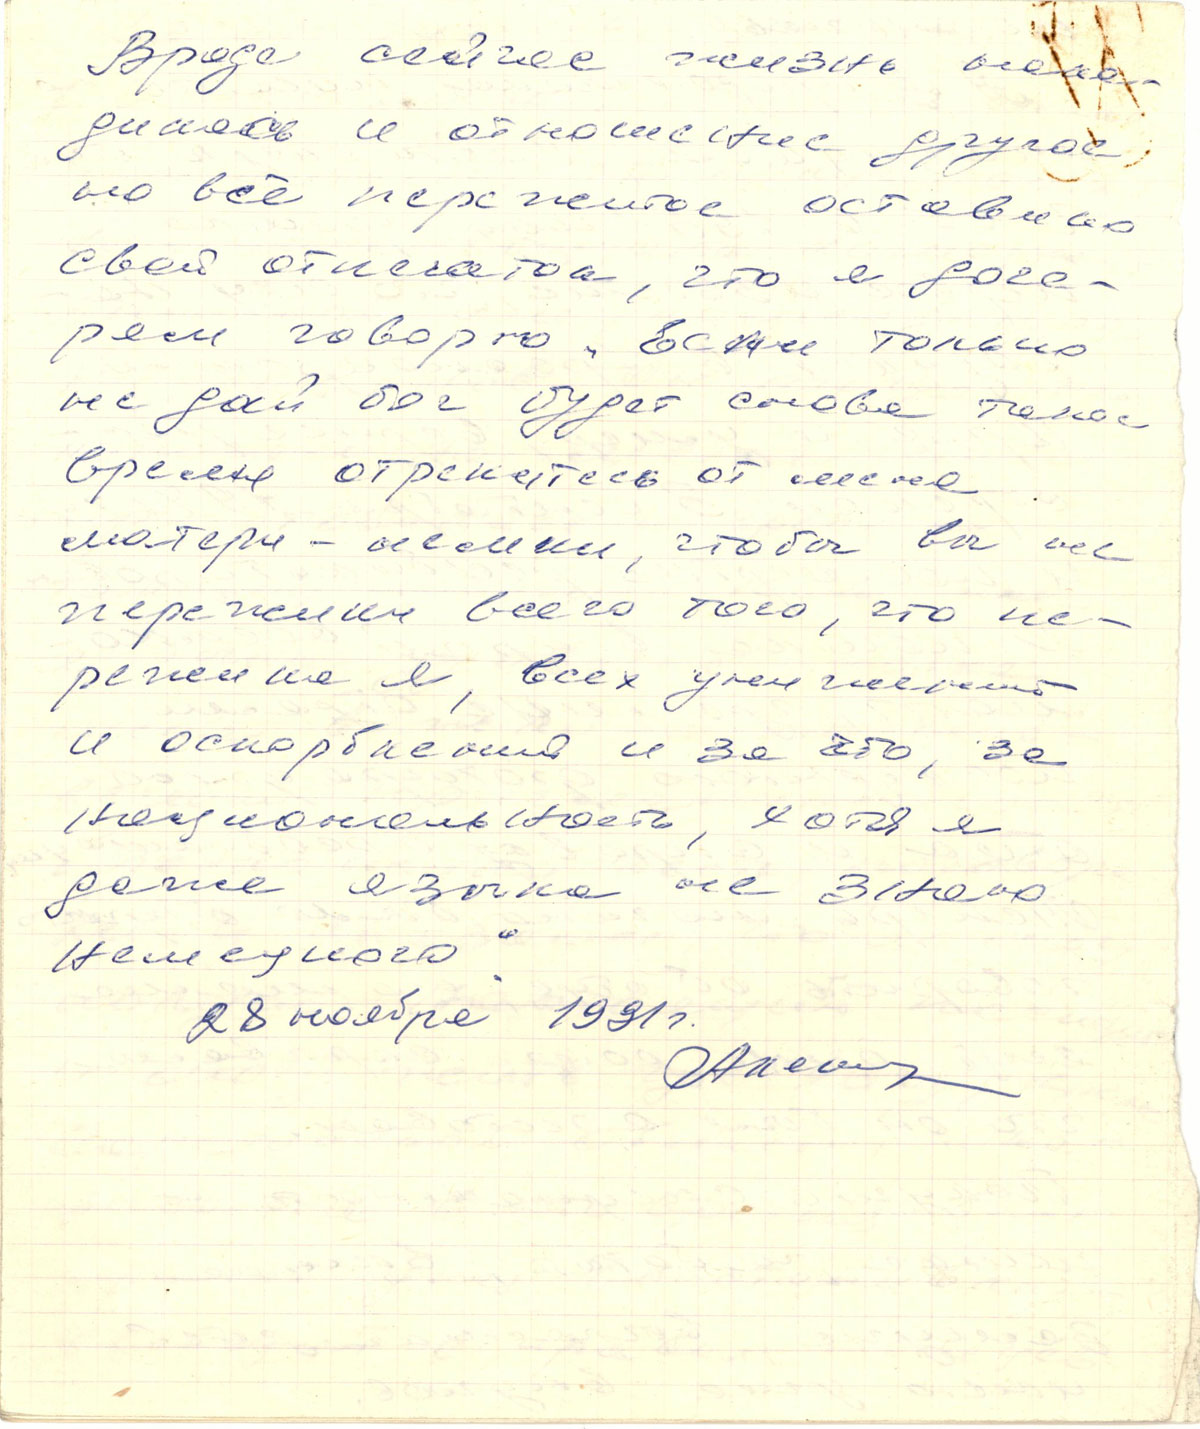 Вроде сейчас жизнь нала-
дилась и отношение другое,
но всё пережитое оставило
свой отпечаток, что я доче-
рям говорю „Если только
не дай бог будет снова такое
время отрекитесь от меня
матери - немки, чтобы вы не
пережили всего того, что пе-
режила я, всех унижений
и оскорблений и за что, за
национальность, хотя я
даже языка не знаю
немецкого“.
28 ноября 1991г.